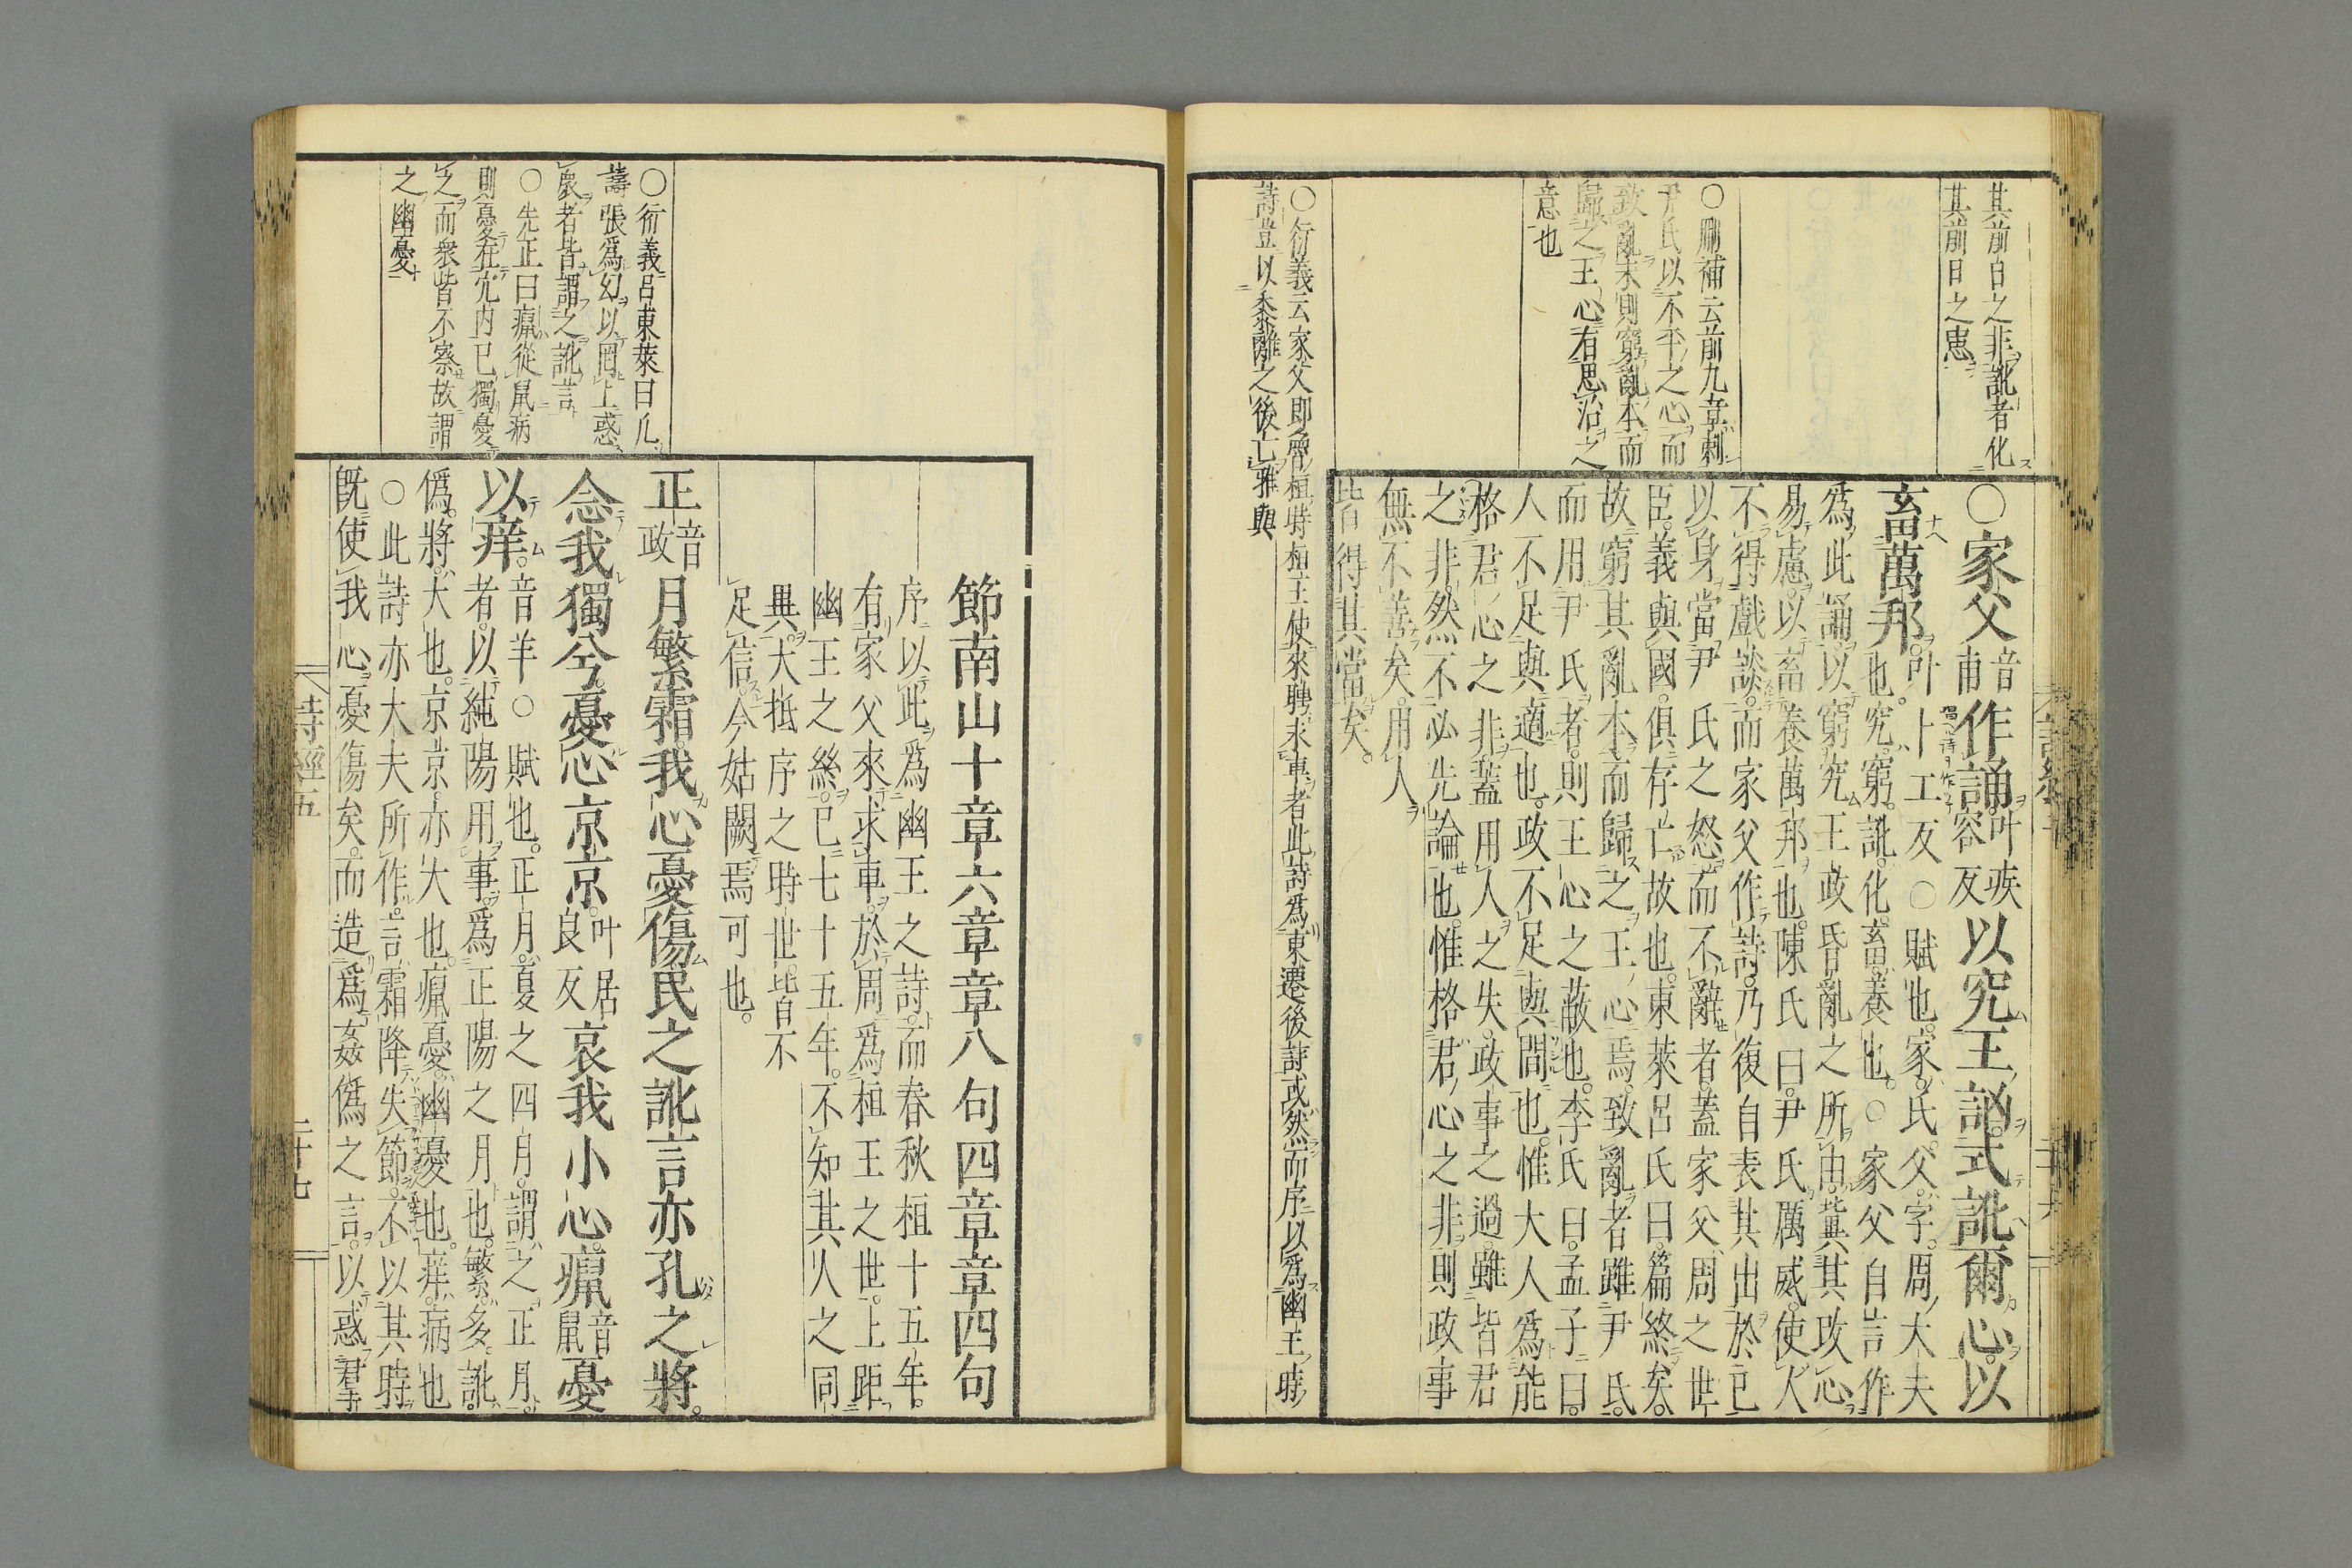 其前日之非訛者化
其前日之惠
○刪補云前九章刺
尹氏以不平之心而
致亂末則窮亂本而
歸之王心有思治之
意也
○衍義云家父即魯桓時桓王使來聘求車者此詩爲東遷後詩或然而序以爲幽王時
詩豈以黍離之後亡雅與
○家父音甫作誦叶疾容反以究王訩式訛爾心以
畜萬邦叶卜工反○賦也家氏父字周大夫
也究窮訛化畜養也○家父自言作
爲此誦以窮究王政昏亂之所由冀其改心
易慮以畜養萬邦也陳氏曰尹氏厲威使人
不得戲談而家父作詩乃復自表其出於已
以身當尹氏之怒而不辭者蓋家父周之世
臣義與國俱存亡故也東萊呂氏曰篇終矣
故窮其亂本而歸之王心焉致亂者雖尹氏
而用尹氏者則王心之蔽也李氏曰孟子曰
人不足與適也政不足與間也惟大人爲能
格君心之非蓋用人之失政事之過雖皆君
之非然不必先論也惟格君心之非則政事
無不善矣用人
皆得其當矣
詩經五
二十六
節南山十章六章章八句四章章四句
序以此爲幽王之詩而春秋桓十五年
有家父來求車於周爲桓王之世上距
幽王之終已七十五年不知其人之同
異大抵序之時世皆不
足信今姑闕焉可也
正音政月繁霜我心憂傷民之訛言亦孔之將
念我獨兮憂心京京叶居良反哀我小心癙音鼠憂
以痒音羊○賦也正月夏之四月謂之正月
者以純陽用事爲正陽之月也繁多訛
僞將大也京京亦大也癙憂幽憂也痒病也
○此詩亦大夫所作言霜降失節不以其時
既使我心憂傷矣而造爲姦僞之言以惑群
○衍義呂東萊曰凡
譸張爲幻以罔上惑
衆者皆謂之訛言
○先正曰癙從鼠病
則憂在穴内已獨憂
之而衆皆不察故謂
之幽憂
詩經五
二十七